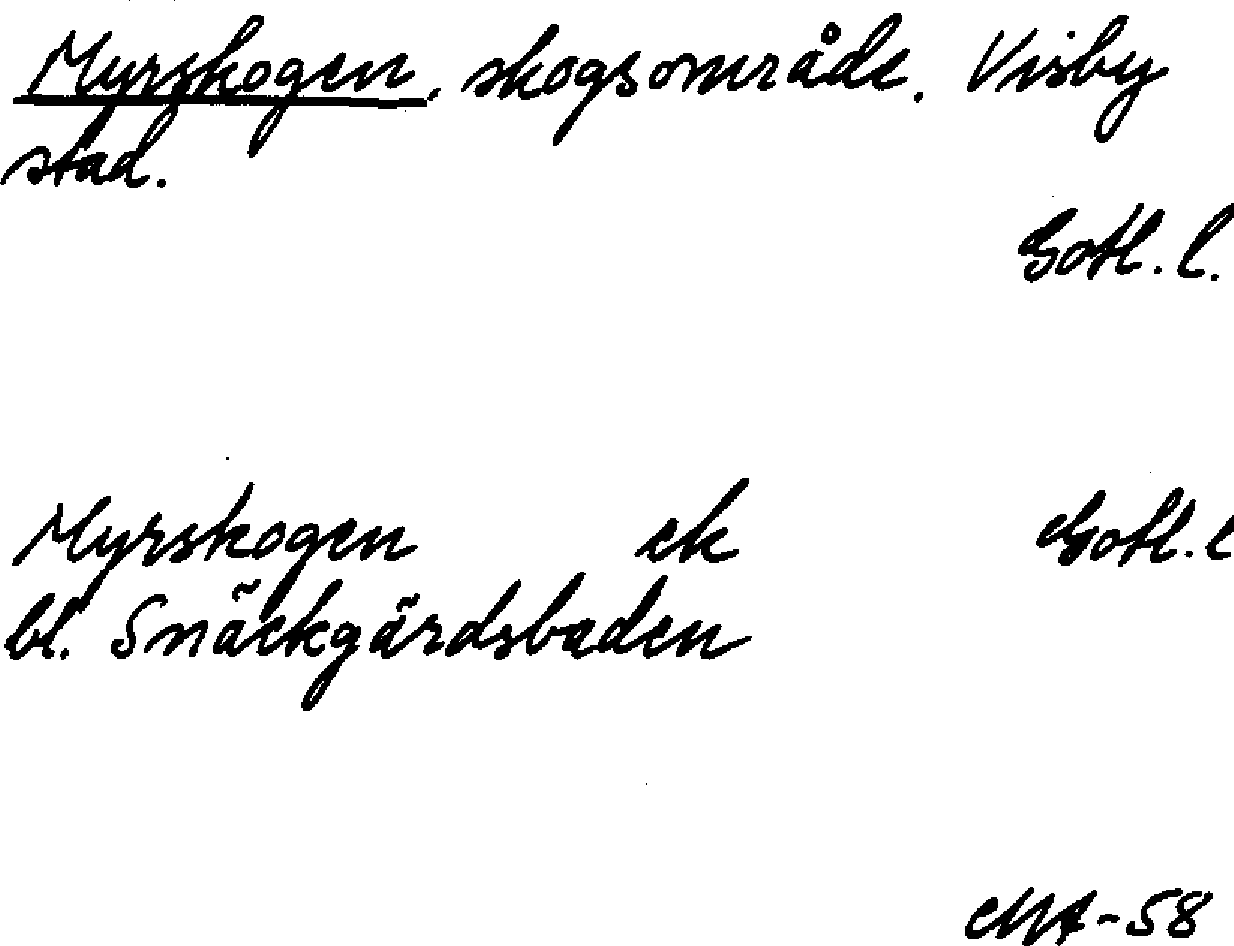 Myrskogen, skogsområde. Visby
stad.
Gotl. l.
Myrskogen ek Gotl. l
bl. Snäckgärdsbaden
MA-58